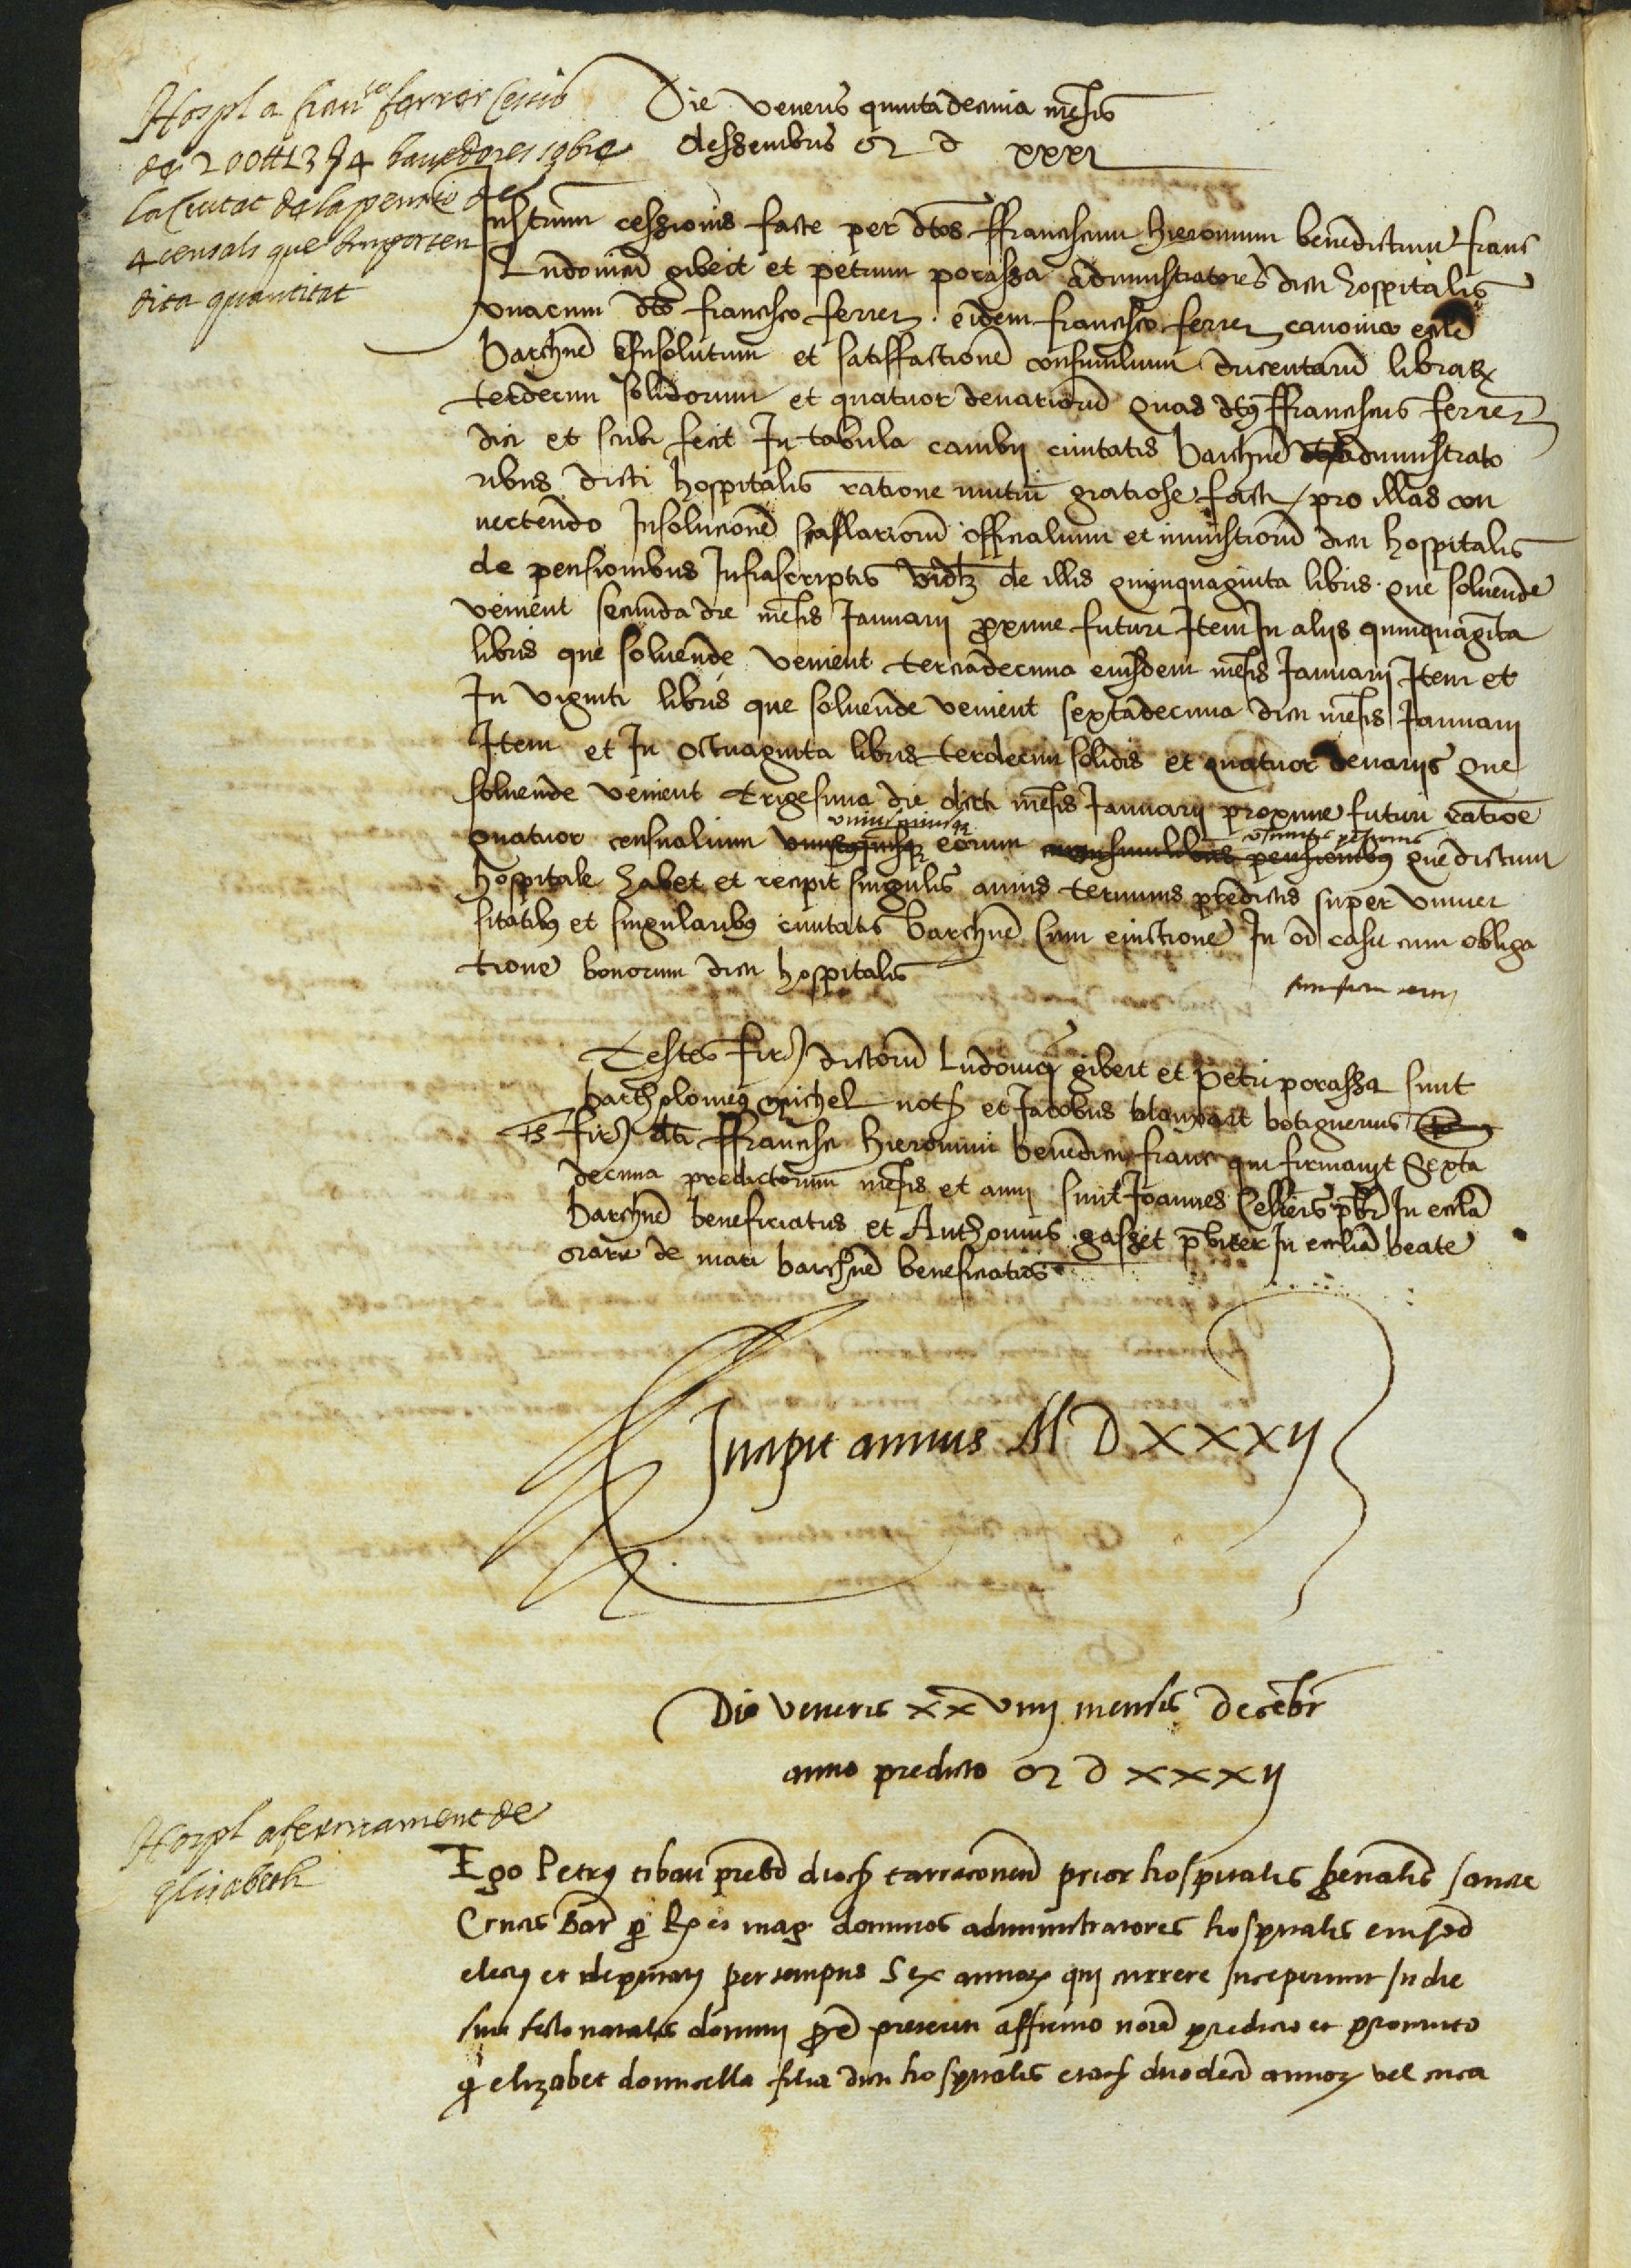 Hospl a franco ferrer cessio
de 200 ₶ 13 ß 4 havedores sobre
la Ciutat de la pensio de
4 censals que importen
dita quantitat
Die veneris quintadecima mēsis
dessembris M D xxxi
Instrum cessionis facte per dtos ffranciscum hieronimum benedictum franc
Ludovicū gibert et petrum porassa administratores dicti hospitalis
unacum dto francisco ferrer eidem francisco ferrer canonico eccle
barchnē Insolutum et satisffactionē consimilium ducentarū librarꝝ
terdecim solidorum et quatuor denariorū quas dtus ffranciscus ferrer
dici et scribi fecit In tabula cambij civitatis barchnē administrato
ribus dicti hospitalis ratione mutui gratiose facti pro illas con
vertendo Insolucionē sallariorū officialium et ministrorū dicti hospitalis
de pensionibus Infrascriptis vidz de illis quinquaginta libris que solvende
venient secunda die mēsis Januarij proxime futuri Item In alijs quinquaginta
libris que solvende venient terciadecima eiusdem mēsis Januarij Item et
In viginti libris que solvende venient sextadecima dicti mēsis Januarij
Item et In octuaginta libris terdecim solidis et quatuor denarijs que
solvende venient trigesima die dicti mēsis Januarij proxime futuri ratiōe
uniuscuiusq
quatuor censualium eorum pensionibus que dictum
hospitale habet et recipit singulis annis terminis predictis super univer
sitatibus et singularibus civitatis barchnē cum evictione In oī casu cum obliga
tione bonorum dicti hospitalis
Testes fir dictorū Ludovici gibert et petri porassa sunt
bartholomeus michel not et Jacobus blanxart botiguerius
Ts fir dti ffrancisci hieronimi benedicti franc qui firmavit sexta
decima predictorum mēsis et anni sunt Joannes Cellers pbr In eccla
barchnē beneficiatus et Anthonius gasset pbiter In ecclia beate
marie de mari barchnē beneficiatus
Incipit annus M D XXXII
Die veneris xxviiij mensis decēbr
anno predicto M D XXXII
Hospl afermament de
Elisabeth
Ego Petrus tibau prebr dioc tarraconeñ prior hospitalis generalis sancte
Crucis Bar per Rx et mag dominos administratores hospitalis eiusdē
electus et deputatus per tempus sex annorꝝ qui currere Inceperunt In die
sive festo natalis domini prox preteriti affirmo noīe predicto et promitto
ꝙ elizabet domicella filia dicti hospitalis etat duodecī annorꝝ vel circa